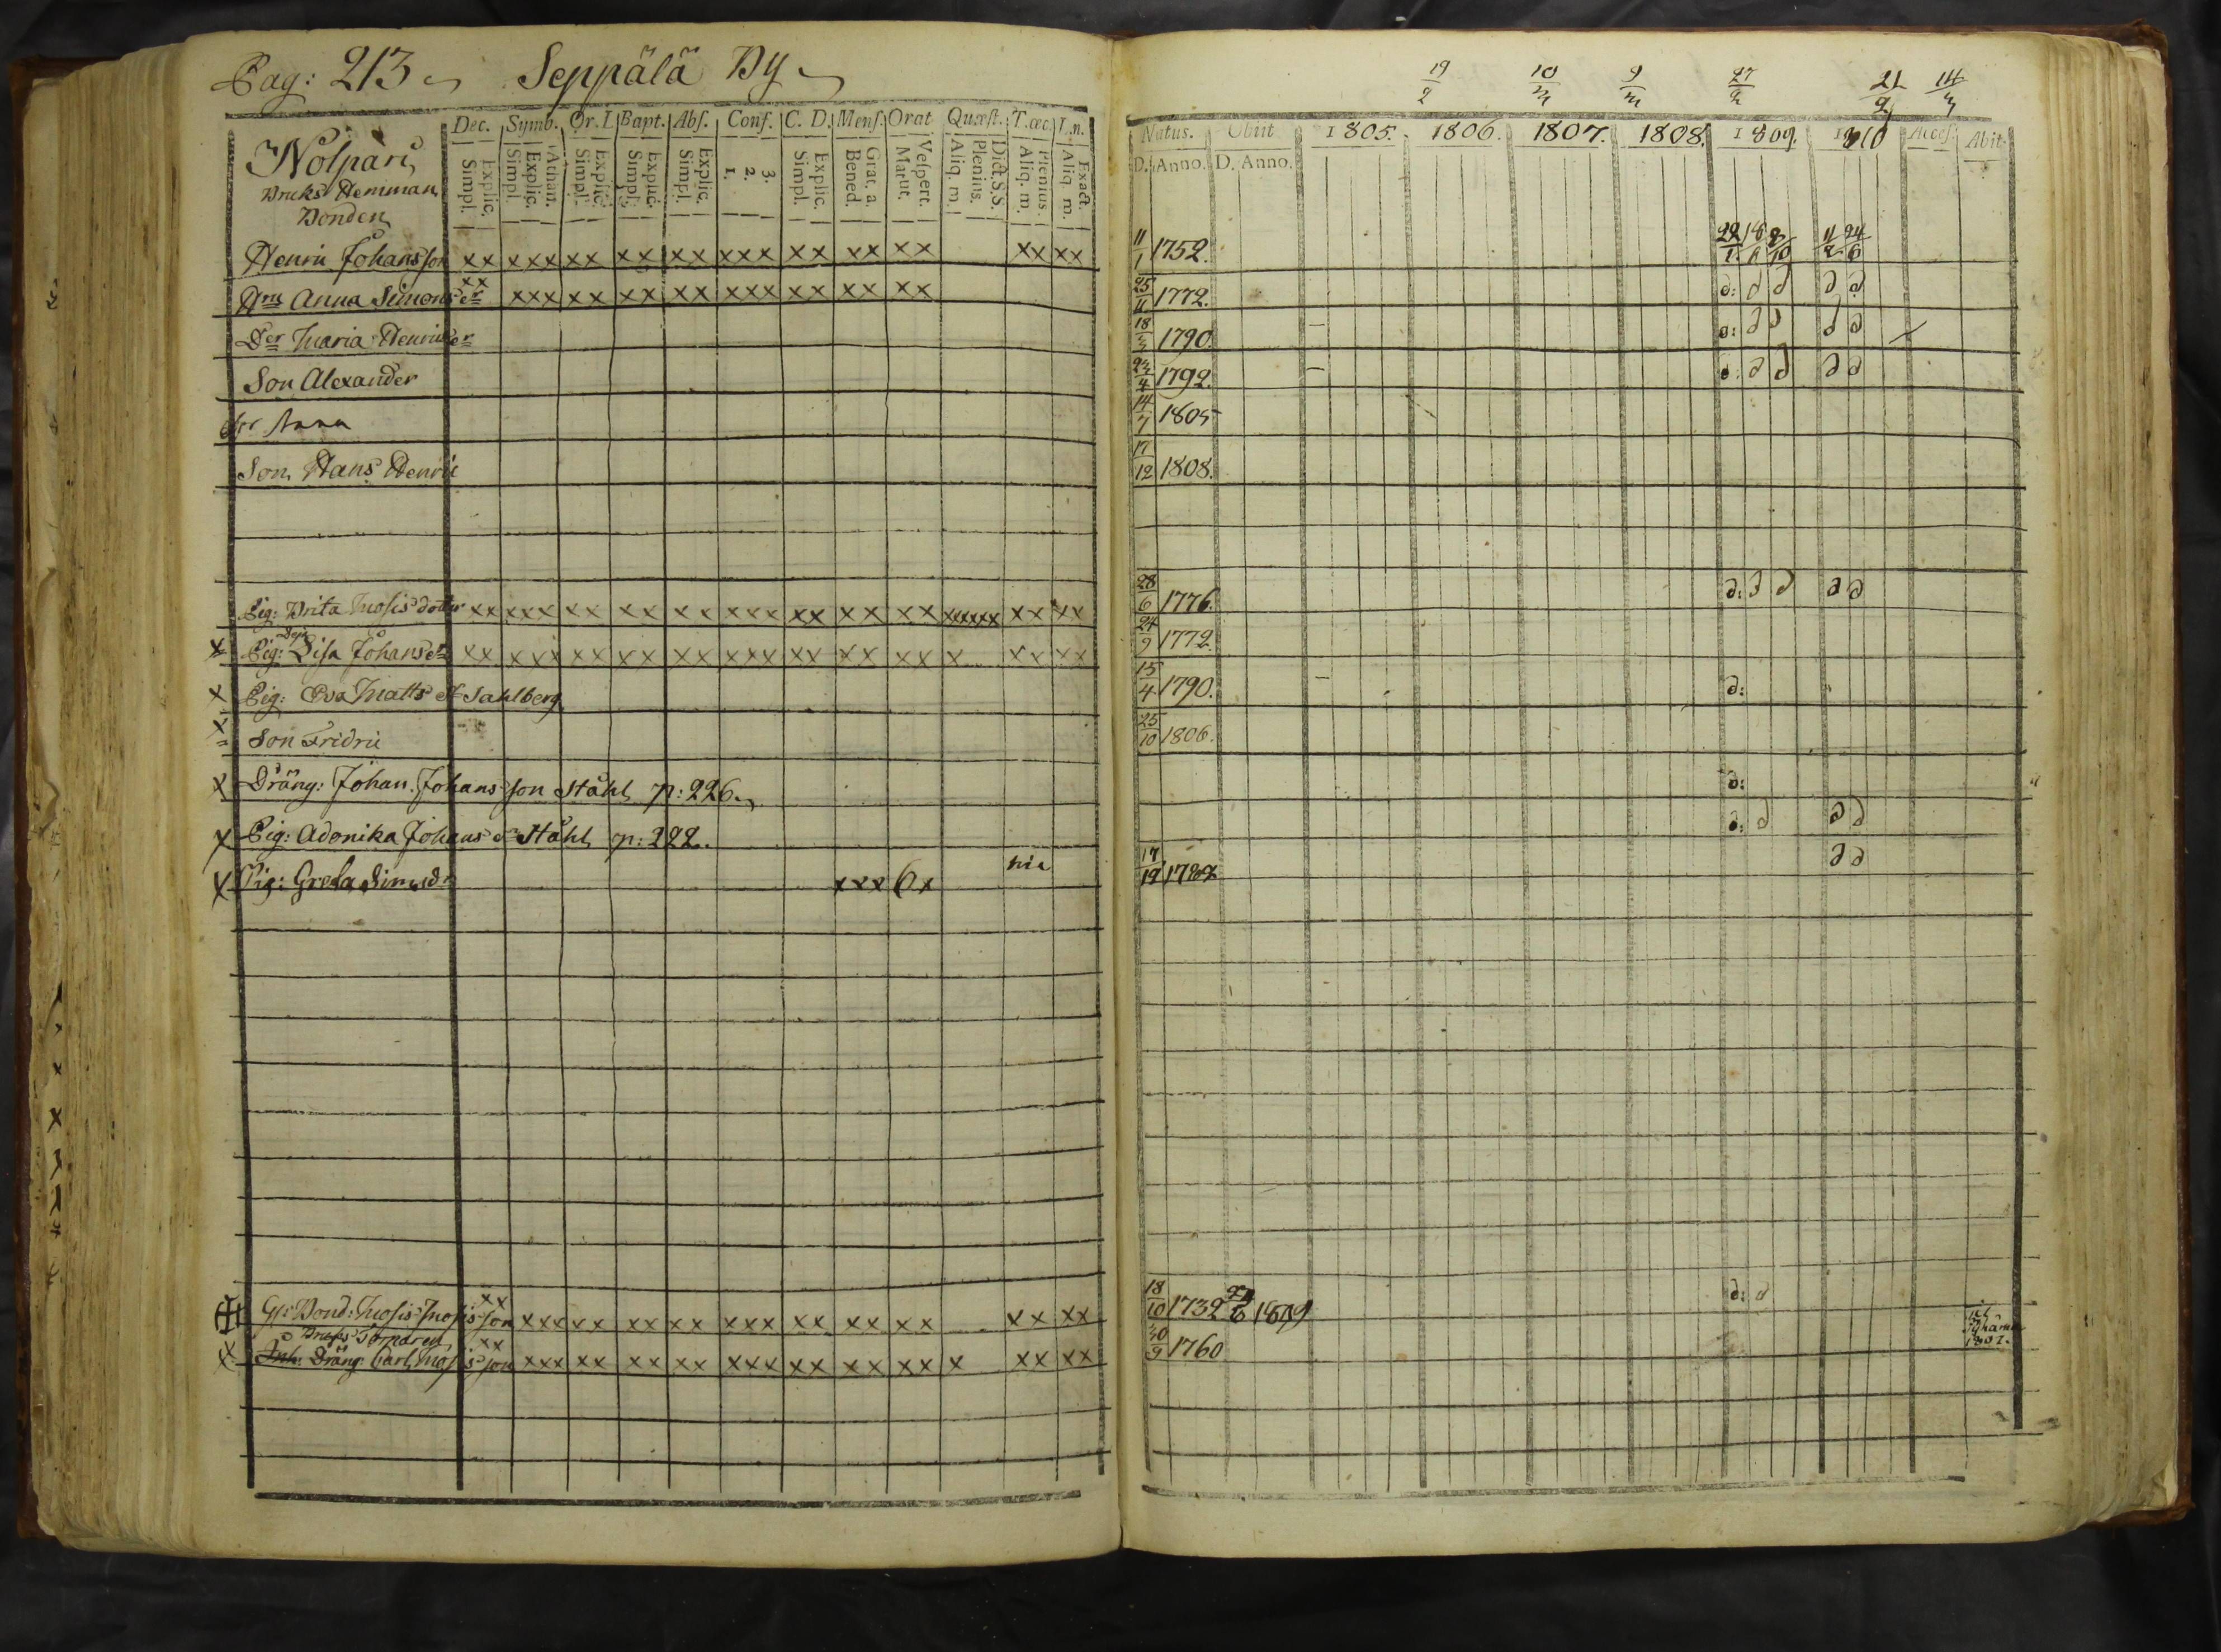 Pag: 213 Seppälä By
19/2 10/3 9/3 27/2 21/2 14/3
Dec. Symb. Or. I. Bapt. Abs. Conf. C. D. Mens. Orat Quæst. T. œc. I. n.
Natus. Obiit 1805. 1806. 1807. 1808. 1809. 1810 Access. Abit
Explic. Simpl. Athan. Explic. Simpl. Explic. Simpl. Explic. Simpl. Explic. Simpl. 3. 2. 1. Explic. Simpl. Grat. a. Bened. Vespert. Matut. Dict. S.S. Plenius. Aliq. m. Plenius. Aliq. m. Exact. Aliq. m.
D. Anno. D. Anno.
Nolpari
Bruks Hemman
Bonden
Henric Johansson xx xxx xx xx xx xxx xx xx xx xx xx 11/1 1752.
Hru Anna Simonsdr xx xxx xx xx xx xxx xx xx xx 25/11 1772. d: d d d d
Dr Maria Henricsdr 18/3 1790. d: d d d d
Son Alexander 23/4 1792. d: d d d d
Dr Anna 14/7 1805
Son Hans Henric 17/12 1808.
Pig: Brita Mosisdotter xx xxx xx xx xx xxx xx xx xx xxxxxx xx xx 28/6 1776. d: d d d d
x Pig: Lisa Johansdr xx xxx xx xx xx xxx xx xx xx x xx xx 24/9 1772.
x Pig: Eva Matts dr Sahlberg 15/4 1790. d:
x Son Fridric 25/10 1806.
x Dräng: Johan Johansson Ståhl p: 226. d:
x Pig: Adonika Johans dr Ståhl p: 222. d: d d d
x Pig: Greta Simsdr xxx 6x 17/12 d d
Gl: Bond: Mosis Mosisson xx xxx xx xx xx xxx xx xx xx xx xx 18/10 1732 1809 d: d
x Inh. Dräng: Carl Mosisson xx xxx xx xx xx xxx xx xx xx x xx xx 30/9 1760